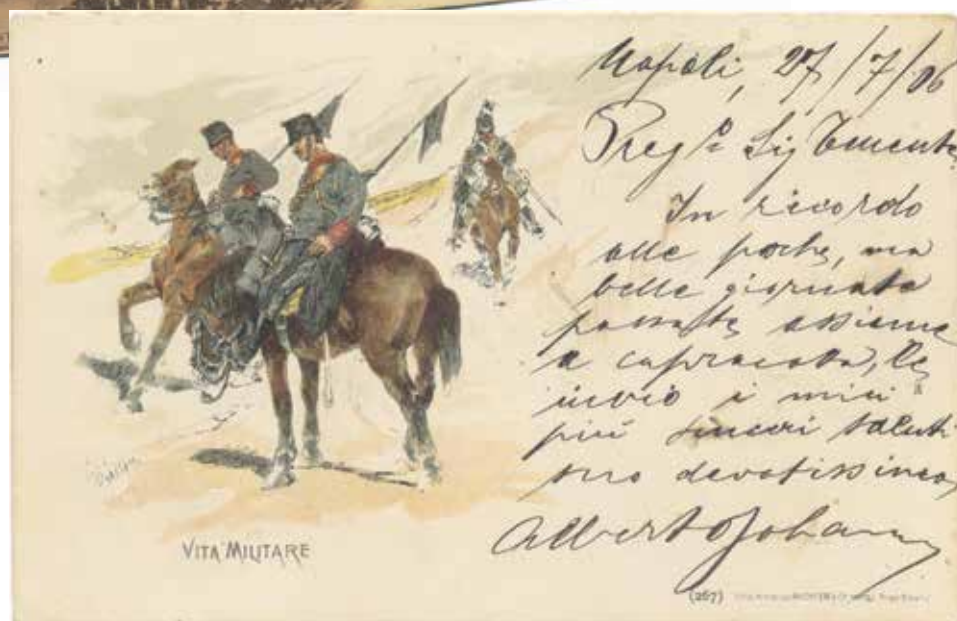 Napoli, 27/7/06
Preg.º Sig Tenente,
In ricordo
alle poche, ma
belle giornate
passate assieme
a capracotta, Le
invio i miei
più sinceri saluti
suo devotissimo,
Alberto
VITA MILITARE
(267)